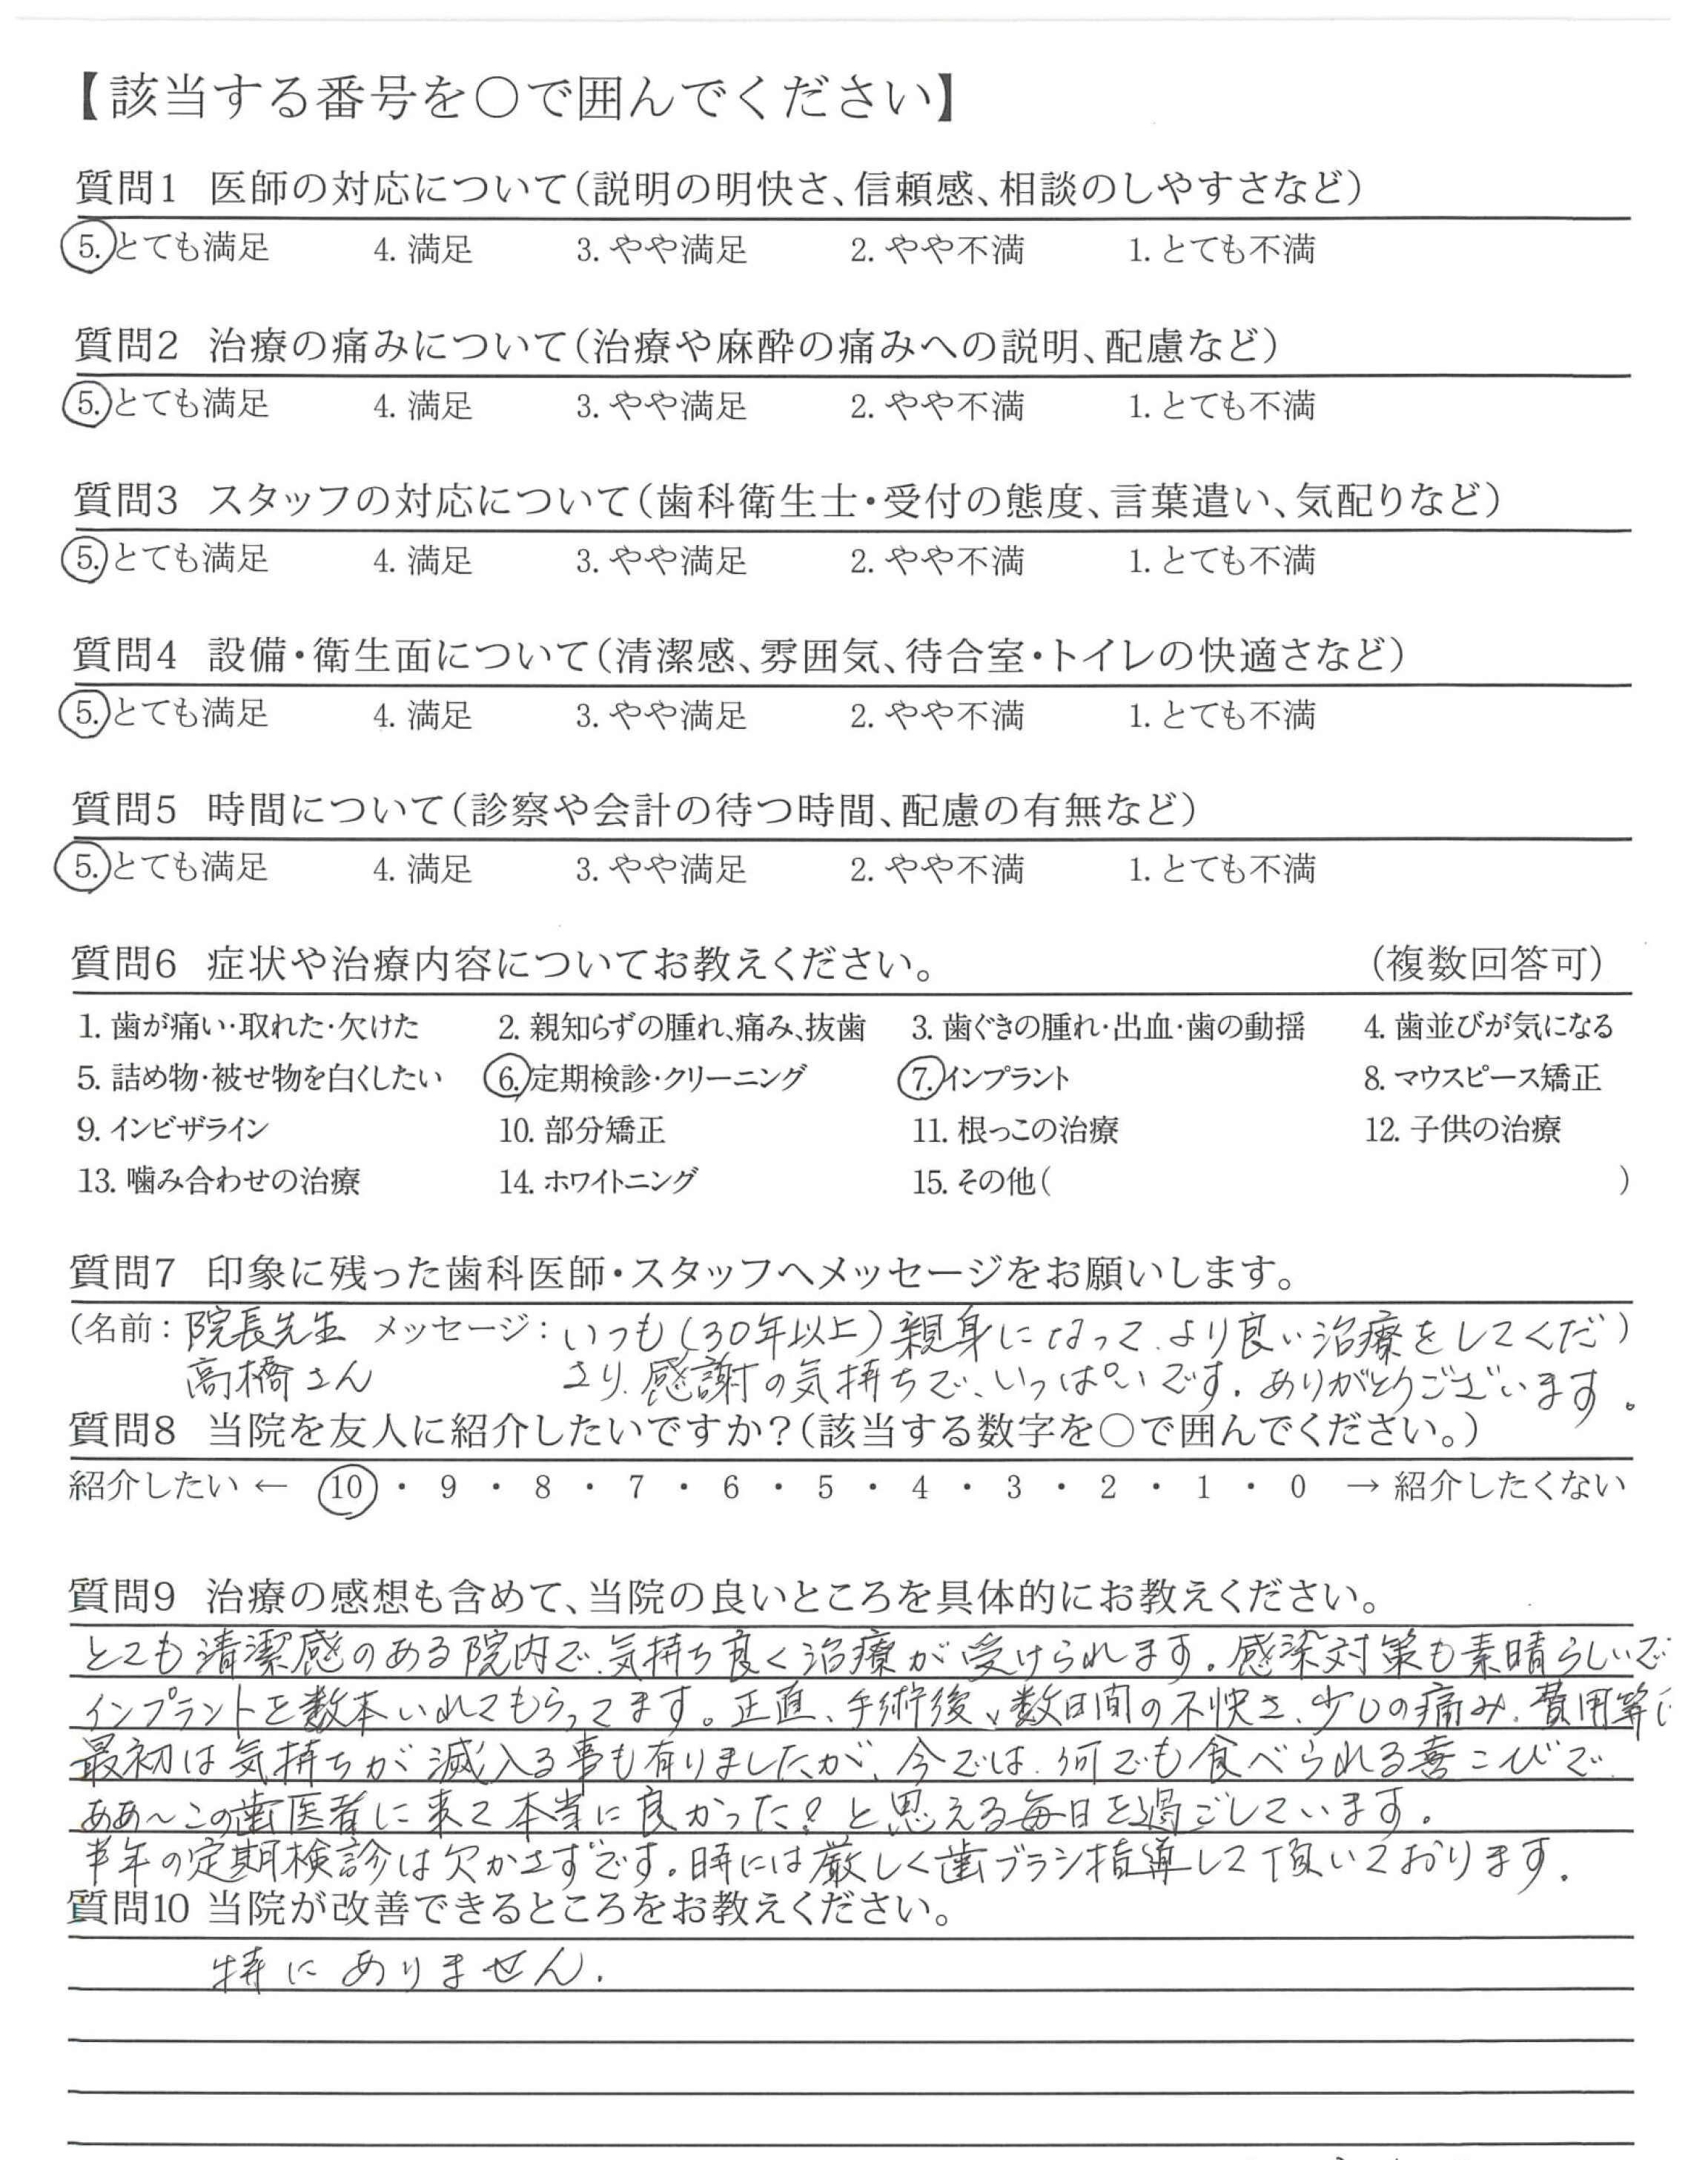 【該当する番号を○で囲んでください】
質問1 医師の対応について(説明の明快さ、信頼感、相談のしやすさなど)
5. とても満足 4. 満足 3. やや満足 2. やや不満 1. とても不満
質問2 治療の痛みについて(治療や麻酔の痛みへの説明、配慮など)
5. とても満足 4. 満足 3. やや満足 2. やや不満 1. とても不満
質問3 スタッフの対応について(歯科衛生士・受付の態度、言葉遣い、気配りなど)
5. とても満足 4. 満足 3. やや満足 2. やや不満 1. とても不満
質問4 設備・衛生面について(清潔感、雰囲気、待合室・トイレの快適さなど)
5. とても満足 4. 満足 3. やや満足 2. やや不満 1. とても不満
質問5 時間について(診察や会計の待つ時間、配慮の有無など)
5. とても満足 4. 満足 3. やや満足 2. やや不満 1. とても不満
質問6 症状や治療内容についてお教えください。 (複数回答可)
1. 歯が痛い・取れた・欠けた 2. 親知らずの腫れ、痛み、抜歯 3. 歯ぐきの腫れ・出血・歯の動揺 4. 歯並びが気になる
5. 詰め物・被せ物を白くしたい 6. 定期検診・クリーニング 7. インプラント 8. マウスピース矯正
9. インビザライン 10. 部分矯正 11. 根っこの治療 12. 子供の治療
13. 噛み合わせの治療 14. ホワイトニング 15. その他( )
質問7 印象に残った歯科医師・スタッフへメッセージをお願いします。
(名前: 院長先生 メッセージ: いつも(30年以上)親身になって、より良い治療をしてくだ)
高橋さん さり、感謝の気持ちで、いっぱいです。ありがとうございます。
質問8 当院を友人に紹介したいですか?(該当する数字を○で囲んでください。)
紹介したい ← 10 ・ 9 ・ 8 ・ 7 ・ 6 ・ 5 ・ 4 ・ 3 ・ 2 ・ 1 ・ 0 → 紹介したくない
質問9 治療の感想も含めて、当院の良いところを具体的にお教えください。
とても清潔感のある院内で、気持ち良く治療が受けられます。感染対策も素晴らしいで
インプラントを数本いれてもらってます。正直、手術後、数日間の不快さ、少しの痛み、費用等に
最初は気持ちが滅入る事も有りましたが、今では、何でも食べられる喜こびで、
ああ～この歯医者に来て本当に良かった!と思える毎日を過ごしています。
半年の定期検診は欠かさずです。時には厳しく歯ブラシ指導して頂いております。
質問10 当院が改善できるところをお教えください。
特にありません.